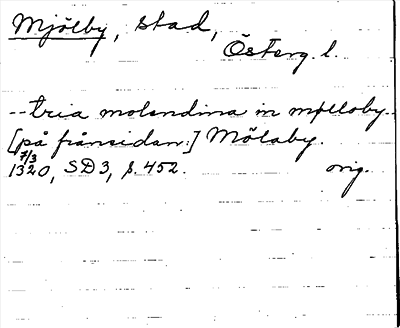 Mjölby, stad,
Österg. l.
-- tria molendina in mølloby --
[på frånsidan:] Mölaby.
7/3
1320, SD3, s. 452. orig.